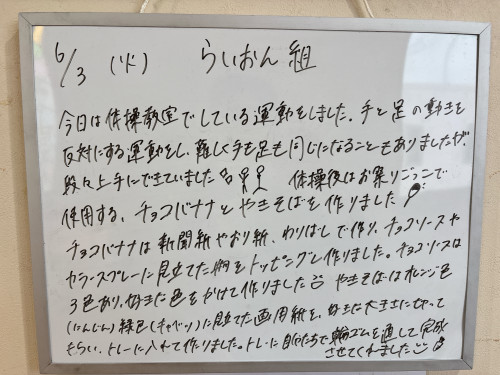 6/3 (火) らいおん組
今日は体操教室でしている運動をしました。手と足の動きを
反対にする運動をし、難しく手も足も同じになることもありましたが、
段々上手にできていました 体操後はお祭りごっこで
使用する、チョコバナナとやきそばを作りました
チョコバナナは新聞紙やおり紙、わりばしで作り、チョコソースや
カラースプレーに見立てた物をトッピングし作りました。チョコソースは
3色あり、好きな色をかけて作りました やきそばはオレンジ色
(にんじん)緑色(キャベツ)に見立てた画用紙を、好きな大きさに切って
もらい、トレーに入れて作りました。トレーに自分たちで輪ゴムを通して完成
させてくれました